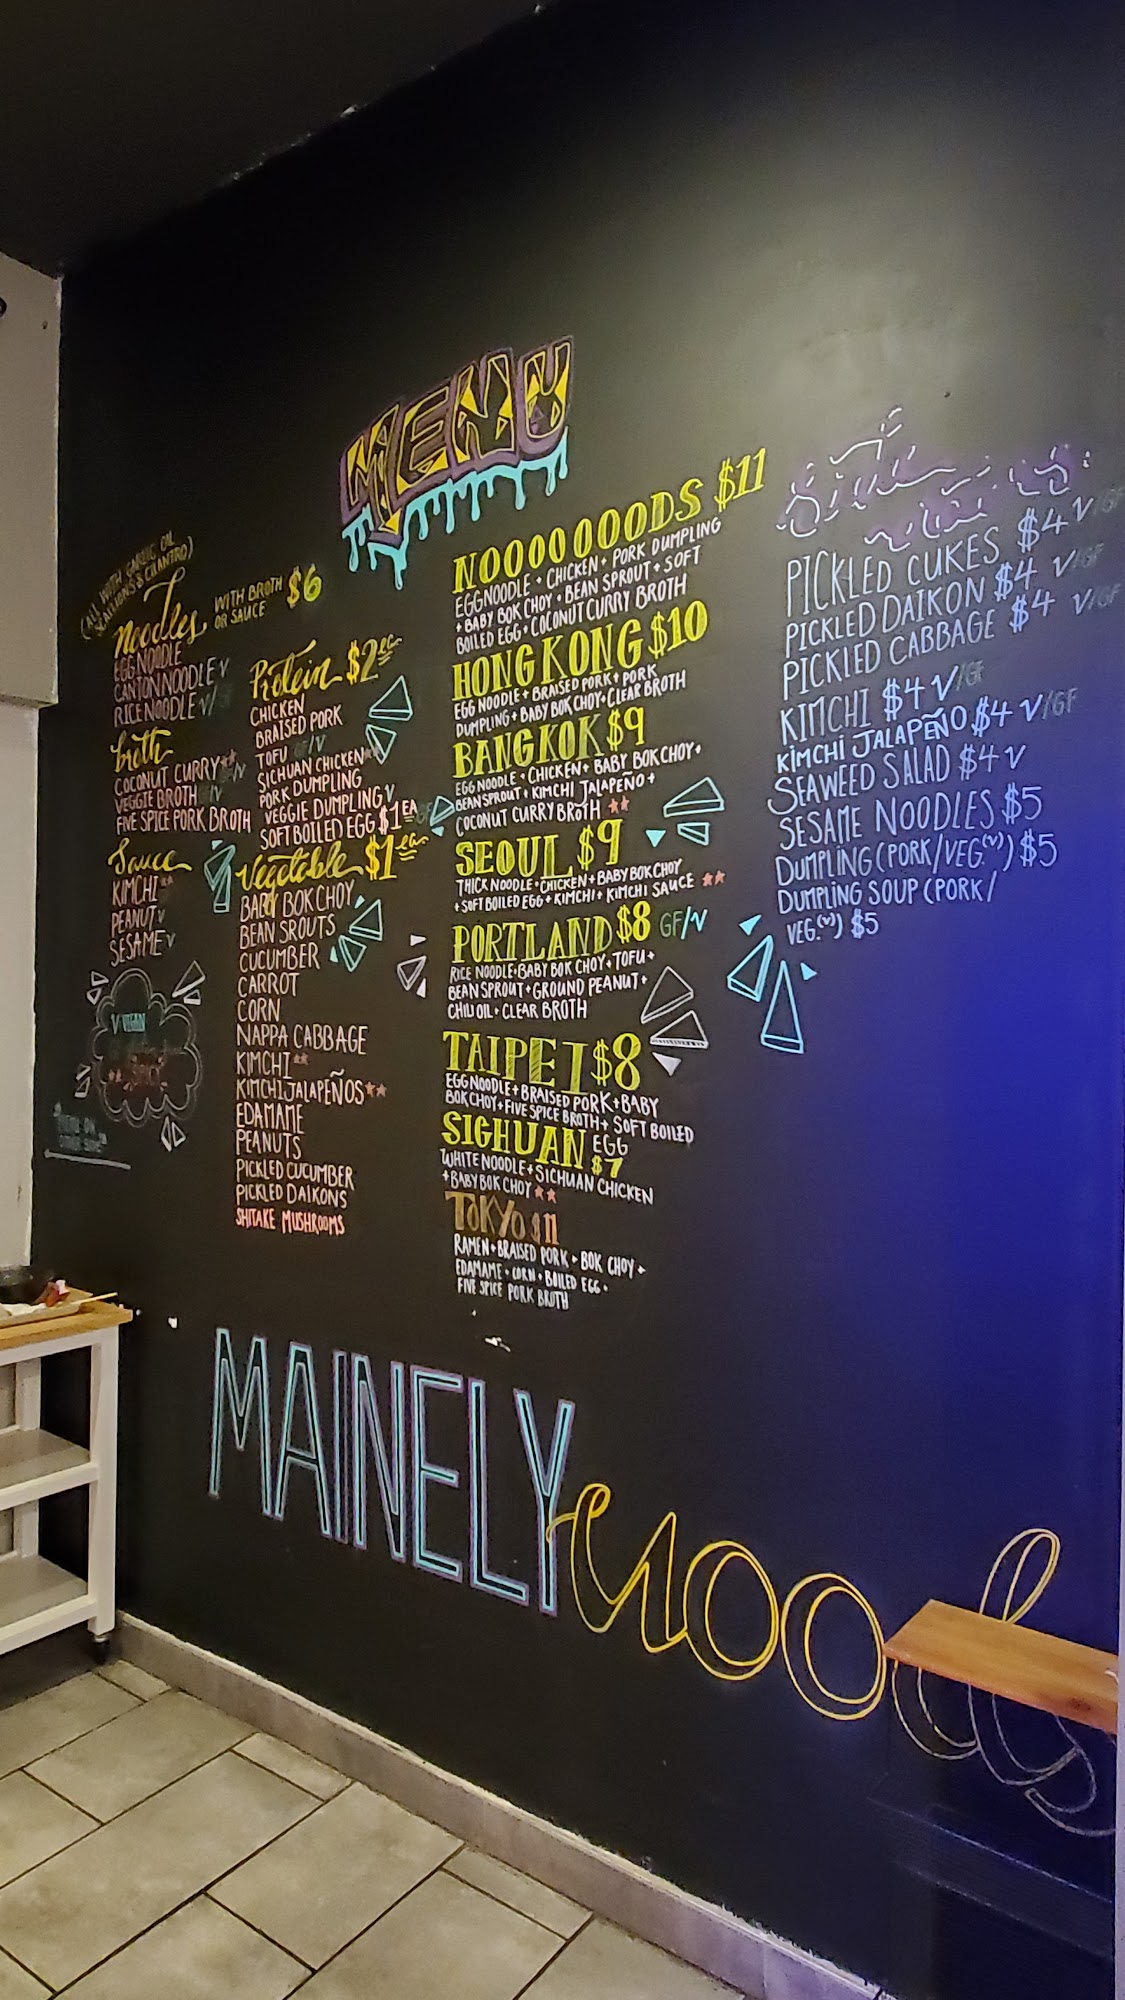 MENU
(ALL WITH GARLIC OIL
SCALLIONS & CILANTRO)
Noodles
WITH BROTH
OR SAUCE $6
EGG NOODLE
CANTON NOODLE V
RICE NOODLE V/
broth
COCONUT CURRY** /V
VEGGIE BROTH /V
FIVE SPICE PORK BROTH
Sauce
KIMCHI**
PEANUT V
SESAME V
V-VEGAN
Protein $2 ea
CHICKEN
BRAISED PORK
TOFU GF/V
SICHUAN CHICKEN
PORK DUMPLING
VEGGIE DUMPLING V
SOFT BOILED EGG $1 EA GF
Vegetable $1 ea
BABY BOK CHOY
BEAN SROUTS
CUCUMBER
CARROT
CORN
NAPPA CABBAGE
KIMCHI**
KIMCHI JALAPEÑOS**
EDAMAME
PEANUTS
PICKLED CUCUMBER
PICKLED DAIKONS
SHITAKE MUSHROOMS
NOOOOOOODS $11
EGG NOODLE + CHICKEN + PORK DUMPLING
+ BABY BOK CHOY + BEAN SPROUT + SOFT
BOILED EGG + COCONUT CURRY BROTH
HONG KONG $10
EGG NOODLE + BRAISED PORK + PORK
DUMPLING + BABY BOK CHOY + CLEAR BROTH
BANGKOK $9
EGG NOODLE + CHICKEN + BABY BOK CHOY +
BEAN SPROUT + KIMCHI JALAPEÑO +
COCONUT CURRY BROTH **
SEOUL $9
THICK NOODLE + CHICKEN + BABY BOK CHOY
+ SOFT BOILED EGG + KIMCHI + KIMCHI SAUCE **
PORTLAND $8 GF/V
RICE NOODLE + BABY BOK CHOY + TOFU +
BEAN SPROUT + GROUND PEANUT +
CHILI OIL + CLEAR BROTH
TAIPEI $8
EGG NOODLE + BRAISED PORK + BABY
BOK CHOY + FIVE SPICE BROTH + SOFT BOILED
EGG
SIGHUAN $7
WHITE NOODLE + SICHUAN CHICKEN
+ BABY BOK CHOY **
TOKYO $11
RAMEN + BRAISED PORK + BOK CHOY +
EDAMAME + CORN + BOILED EGG +
FIVE SPICE PORK BROTH
PICKLED CUKES $4 V/GF
PICKLED DAIKON $4 V/GF
PICKLED CABBAGE $4 V/GF
KIMCHI $4 V/GF
KIMCHI JALAPEÑO $4 V/GF
SEAWEED SALAD $4 V
SESAME NOODLES $5
DUMPLING (PORK/VEG.(V)) $5
DUMPLING SOUP (PORK/
VEG.(V)) $5
MAINELY
noods